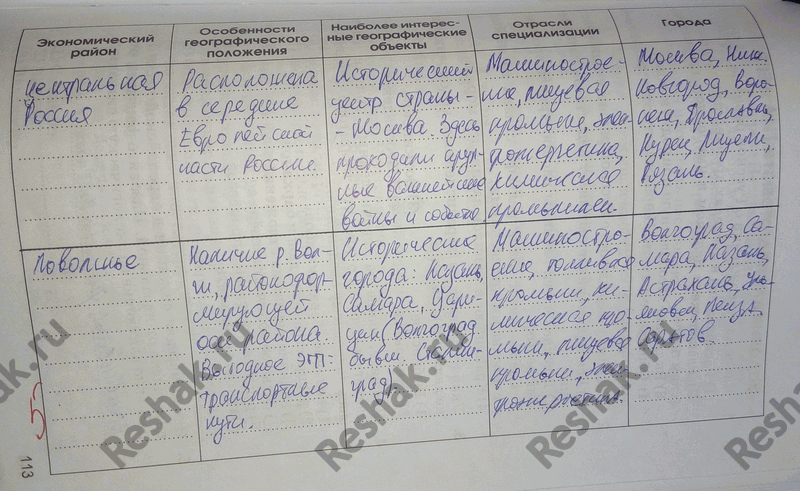 Экономический район
Особенности географического положения
Наиболее интерес-
ные географические
объекты
Отрасли специализации
Города
Центральная
Россия
Расположена
в середине
Европейской
части России.
Исторический
центр страны -
- Москва. Здесь
проходили круп-
ные важнейшие
войны и события
Машинострое-
ние, пищевая
промышл, элек
троэнергетика,
химическая
промышлен.
Москва, Ниж.
Новгород, Воро-
неж, Ярославль,
Курск, Липецк,
Рязань.
Поволжье
Наличие р. Вол-
ги, районофор-
мирующей
оси района.
Выгодное ЭГП:
транспортные
пути.
Исторические
города: Казань,
Самара, Цари-
цын (Волгоград
бывш. Сталин-
град).
Машиностро-
ение, топливная
промышл, хи-
мическая про-
мышл, пищевая
промышл, элек
троэнергетика.
Волгоград, Са-
мара, Казань,
Астрахань, Уль-
яновск, Пенза,
Саратов.
113
Reshak.ru
Reshak.ru
Reshak.ru
Reshak.ru